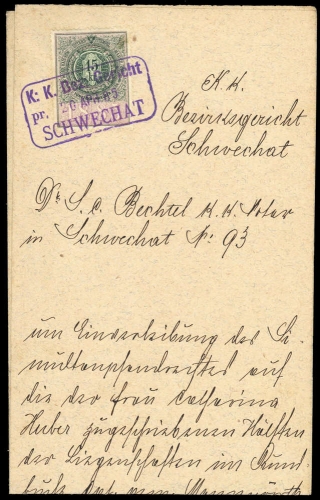 15
K. K. Bez. Gericht
pr. 20 APR. 83
SCHWECHAT
K. K.
Bezirksgericht
Schwechat
Dr. S. C. Bechtel k. k. Notar
in Schwechat No. 93
um Einverleibung des Si-
multanpfandrechtes auf
die der Frau Catharina
Huber zugeschriebenen Hälften
der Liegenschaften im Grund-